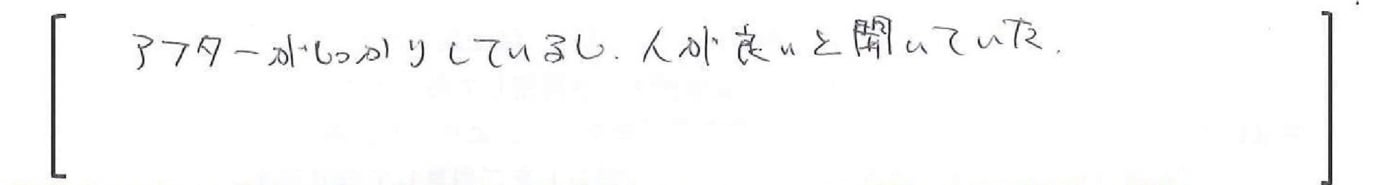 アフターがしっかりしているし、人が良いと聞いていた.